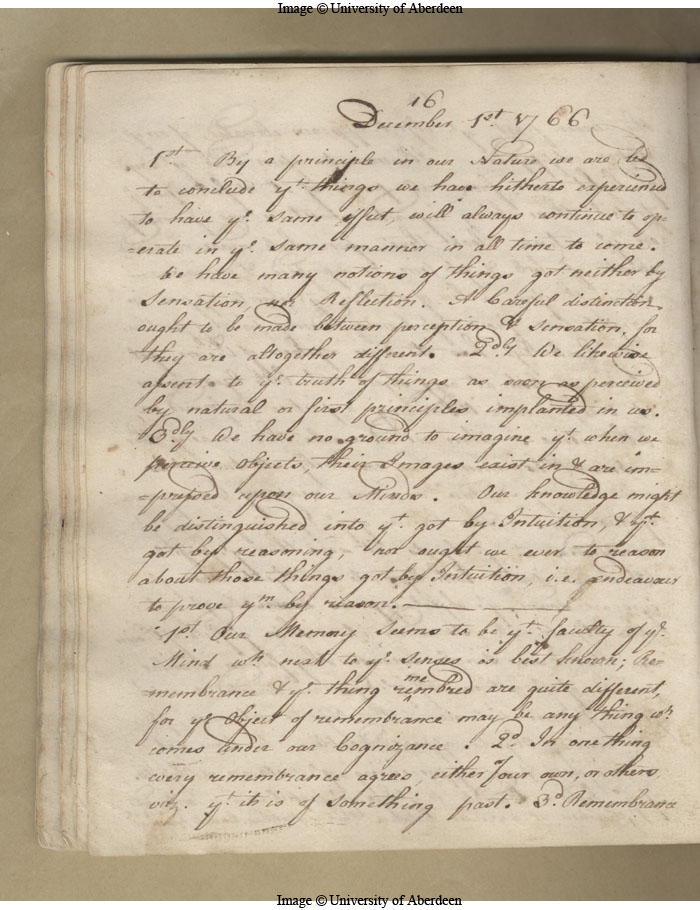 Image © University of Aberdeen
16
December 1st. 1766
1st. By a principle in our Nature we are led
to conclude yt. things we have hitherto experienced
to have ye. same effect, will always continue to op-
-erate in ye. same manner in all time to come.
We have many notions of things got neither by
Sensation, nor Reflection. A Careful distinction
ought to be made between perception & Sensation, for
they are altogether different. 2dly We likewise
assent to ye. truth of things as soon as perceived
by natural or first principles implanted in us.
3dly We have no ground to imagine yt. when we
perceive Objects, their Images exist in & are im-
-pressed upon our Minds. Our knowledge might
be distinguished into yt. got by Intuition, & yt.
got by reasoning, nor ought we ever to reason
about those things got by Intuition, i.e. Endeavour
to prove ym. by reason.
1st. Our Memory seems to be yt. faculty of ye.
Mind wh. next to ye. senses is best known; Re-
-membrance & ye. thing remembred are quite different,
for ye. Object of remembrance may be any thing wh.
comes under our Cognizance. 2d. In one thing
every remembrance agrees, either of our own, or others
viz. yt. it is of something past. 3d. Remembrance
Image © University of Aberdeen